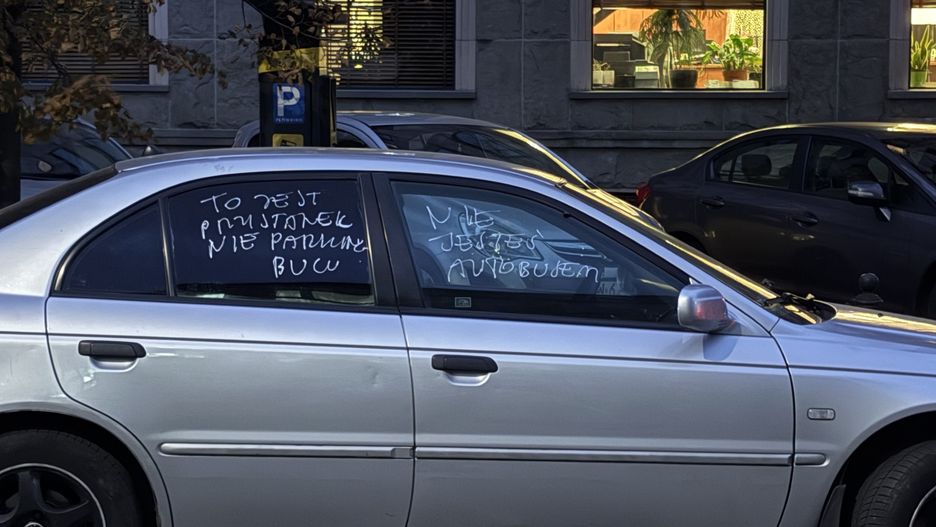 P
TO JEST
PRZYSTANEK
NIE PARKING
BUCU
NIE
JESTEŚ
AUTOBUSEM